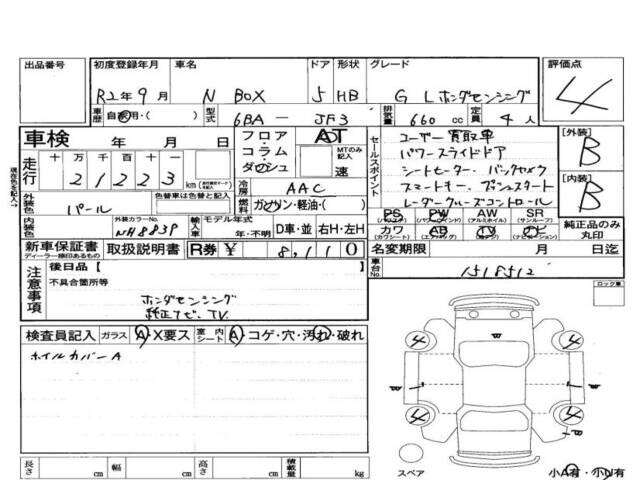 出品番号 初度登録年月 車名 ドア 形状 グレード 評価点
R2年9月 N BOX 5 HB G Lホンダセンシング 4
車歴 自家用・( ) 型式 6BA － JF3 排気量 660 cc 定員 4人
車検 年 月 日 フロア コラム・ダッシュ AT MTのみ記入 速
セールスポイント
ユーザー買取車
パワースライドドア
シートヒーター、バックカメラ
スマートキー、プッシュスタート
レーダークルーズコントロール
[外装] B
[内装] B
現在を記入→
走行 十万千百十一 21223 km
冷房 AAC
外装色 パール 色替車は色替と記入
燃料 ガソリン・軽油・( )
PS AB PW AW SR
(パワステ) (パワーウィンド) (アルミホイル) (サンルーフ)
カワ AB TV ナビ
(カワシート) (エアバッグ) (テレビ) (ナビゲーション)
純正品のみ丸印
内装色 外装カラーNo. NH883P 輸入車 モデル年式 年・不明 D車・並 右H・左H
新車保証書 ディーラー捺印あるもの 取扱説明書 R券 ¥ 8,110
名変期限 月 日迄
車台No. 1518512
注意事項 後日品【 】
不具合箇所等
ホンダセンシング
純正ナビ、TV
ロック車
検査員記入 ガラス A・X要ス 室内シート A・コゲ・穴・汚れ・破れ
ホイルカバーA
4 4
W W W
4 4
W
スペア
小A有・小U有
長さ cm 幅 cm 高さ cm 積載量 kg